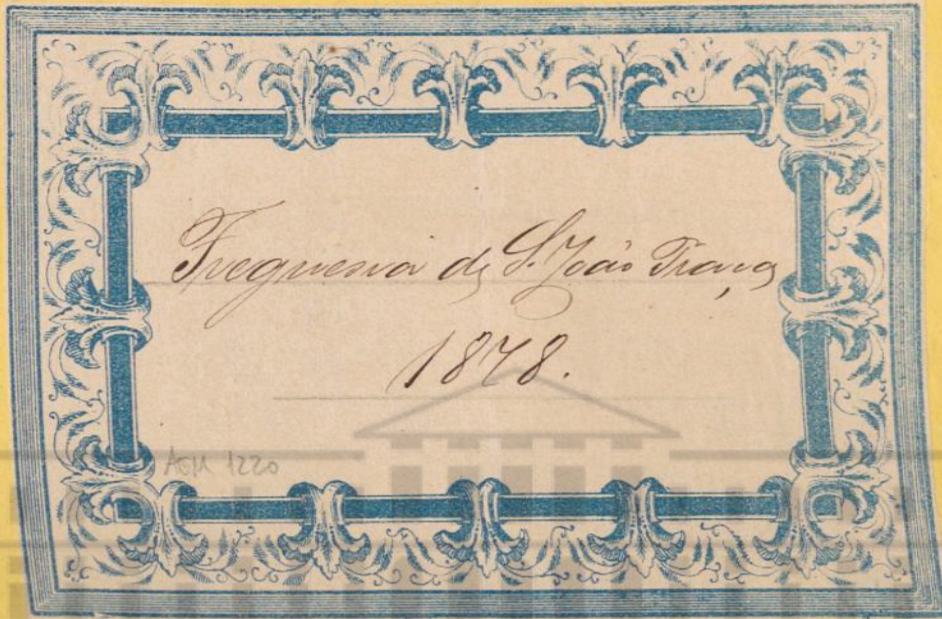 Freguesia de S. João Praça
1878.
AEM 1220